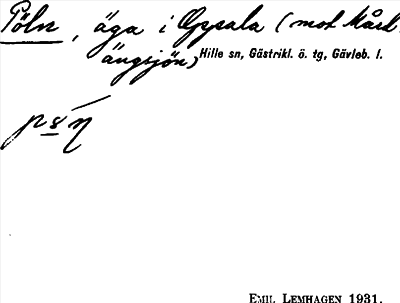 Pöln, äga i Oppsala (mot Mård-
ängsjön) Hille sn, Gästrikl. ö. tg, Gävleb. l.
EMIL LEMHAGEN 1931.